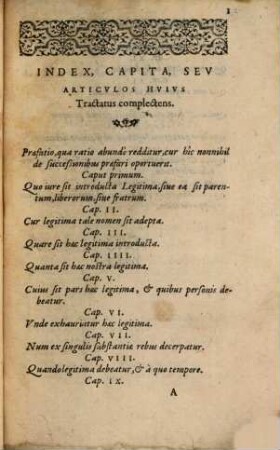 1
INDEX, CAPITA, SEV
ARTICVLOS HVIVS
Tractatus complectens.
Præfatio, qua ratio abundè redditur, cur hic nonnihil
de successionibus præfari oportuerit.
Caput primum.
Quo iure sit introducta Legitima, siue ea sit paren-
tum, liberorum, siue fratrum.
Cap. II.
Cur legitima tale nomen sit adepta.
Cap. III.
Quare sit hæc legitima introducta.
Cap. IIII.
Quanta sit hæc nostra legitima.
Cap. V.
Cuius sit pars hæc legitima, & quibus personis de-
beatur.
Cap. VI.
Vnde exhauriatur hæc legitima.
Cap. VII.
Num ex singulis substantiæ rebus decerpatur.
Cap. VIII.
Quando legitima debeatur, & à quo tempore.
Cap. IX.
A